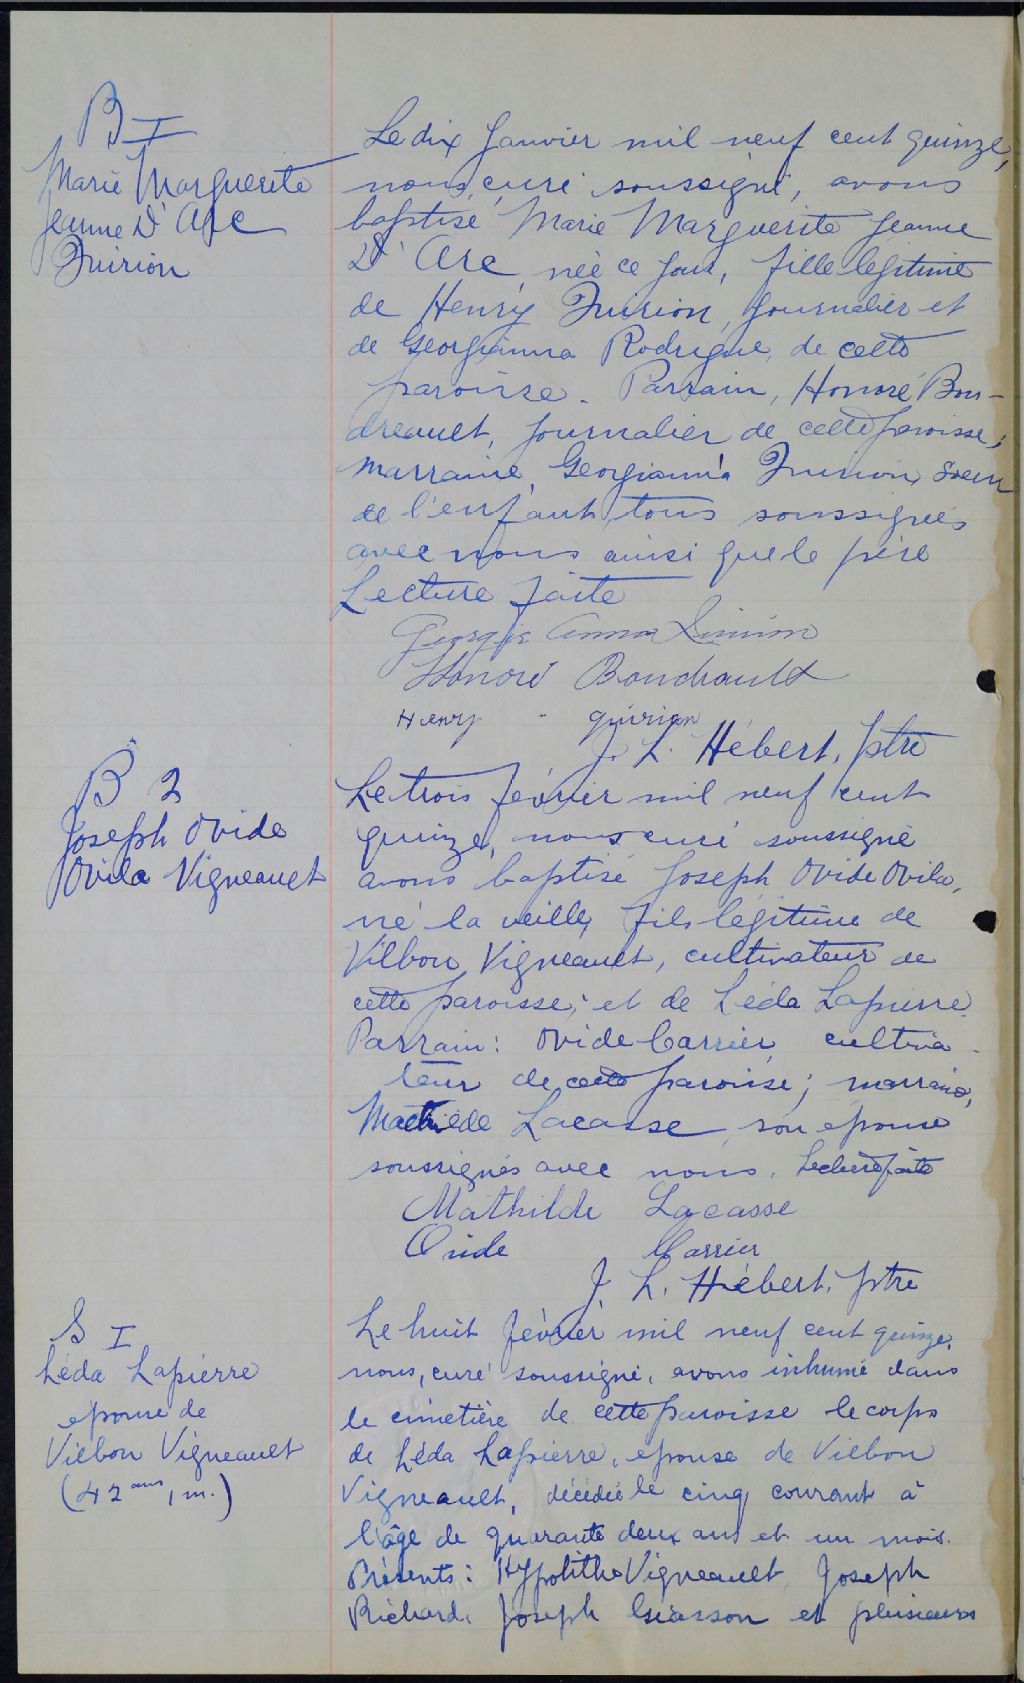 B I
Marie Marguerite
Jeanne D'Arc
Quirion
Le dix Janvier mil neuf cent quinze,
nous, curé soussigné, avons
baptisé Marie Marguerite Jeanne
D'Arc, née ce jour, fille légitime
de Henry Quirion, journalier et
de Georgianna Rodrigue, de cette
paroisse. Parrain, Honoré Bou-
dreault, journalier de cette paroisse;
marraine, Georgianna Quirion, soeur
de l'enfant, tous soussignés
avec nous ainsi que le père
Lecture faite
Georgie Anna Quirion
Honoré Boudrault
Henry - quirion
J. L. Hébert, ptre
B 2
Joseph Ovide
Ovila Vigneault
Le trois février mil neuf cent
quinze, nous curé soussigné
avons baptisé Joseph Ovide Ovila,
né la veille, fils légitime de
Vilbon Vigneault, cultivateur de
cette paroisse; et de Léda Lapierre.
Parrain: Ovide Carrier, cultiva-
teur de cette paroisse; marraine,
Mathilde Lacasse, son epouse
soussignés avec nous. Lecture faite
Mathilde Lacasse
Ovide Carrier
J. L. Hébert, ptre
S I
Léda Lapierre
epouse de
Vilbon Vigneault
(42 ans, 1 m.)
Le huit février mil neuf cent quinze,
nous, curé soussigné, avons inhumé dans
le cimetière de cette paroisse le corps
de Léda Lapierre, epouse de Vilbon
Vigneault, décédée le cinq courant à
l'âge de quarante deux ans et un mois.
Présents: Hypolithe Vigneault, Joseph
Richard, Joseph Giasson et plusieurs